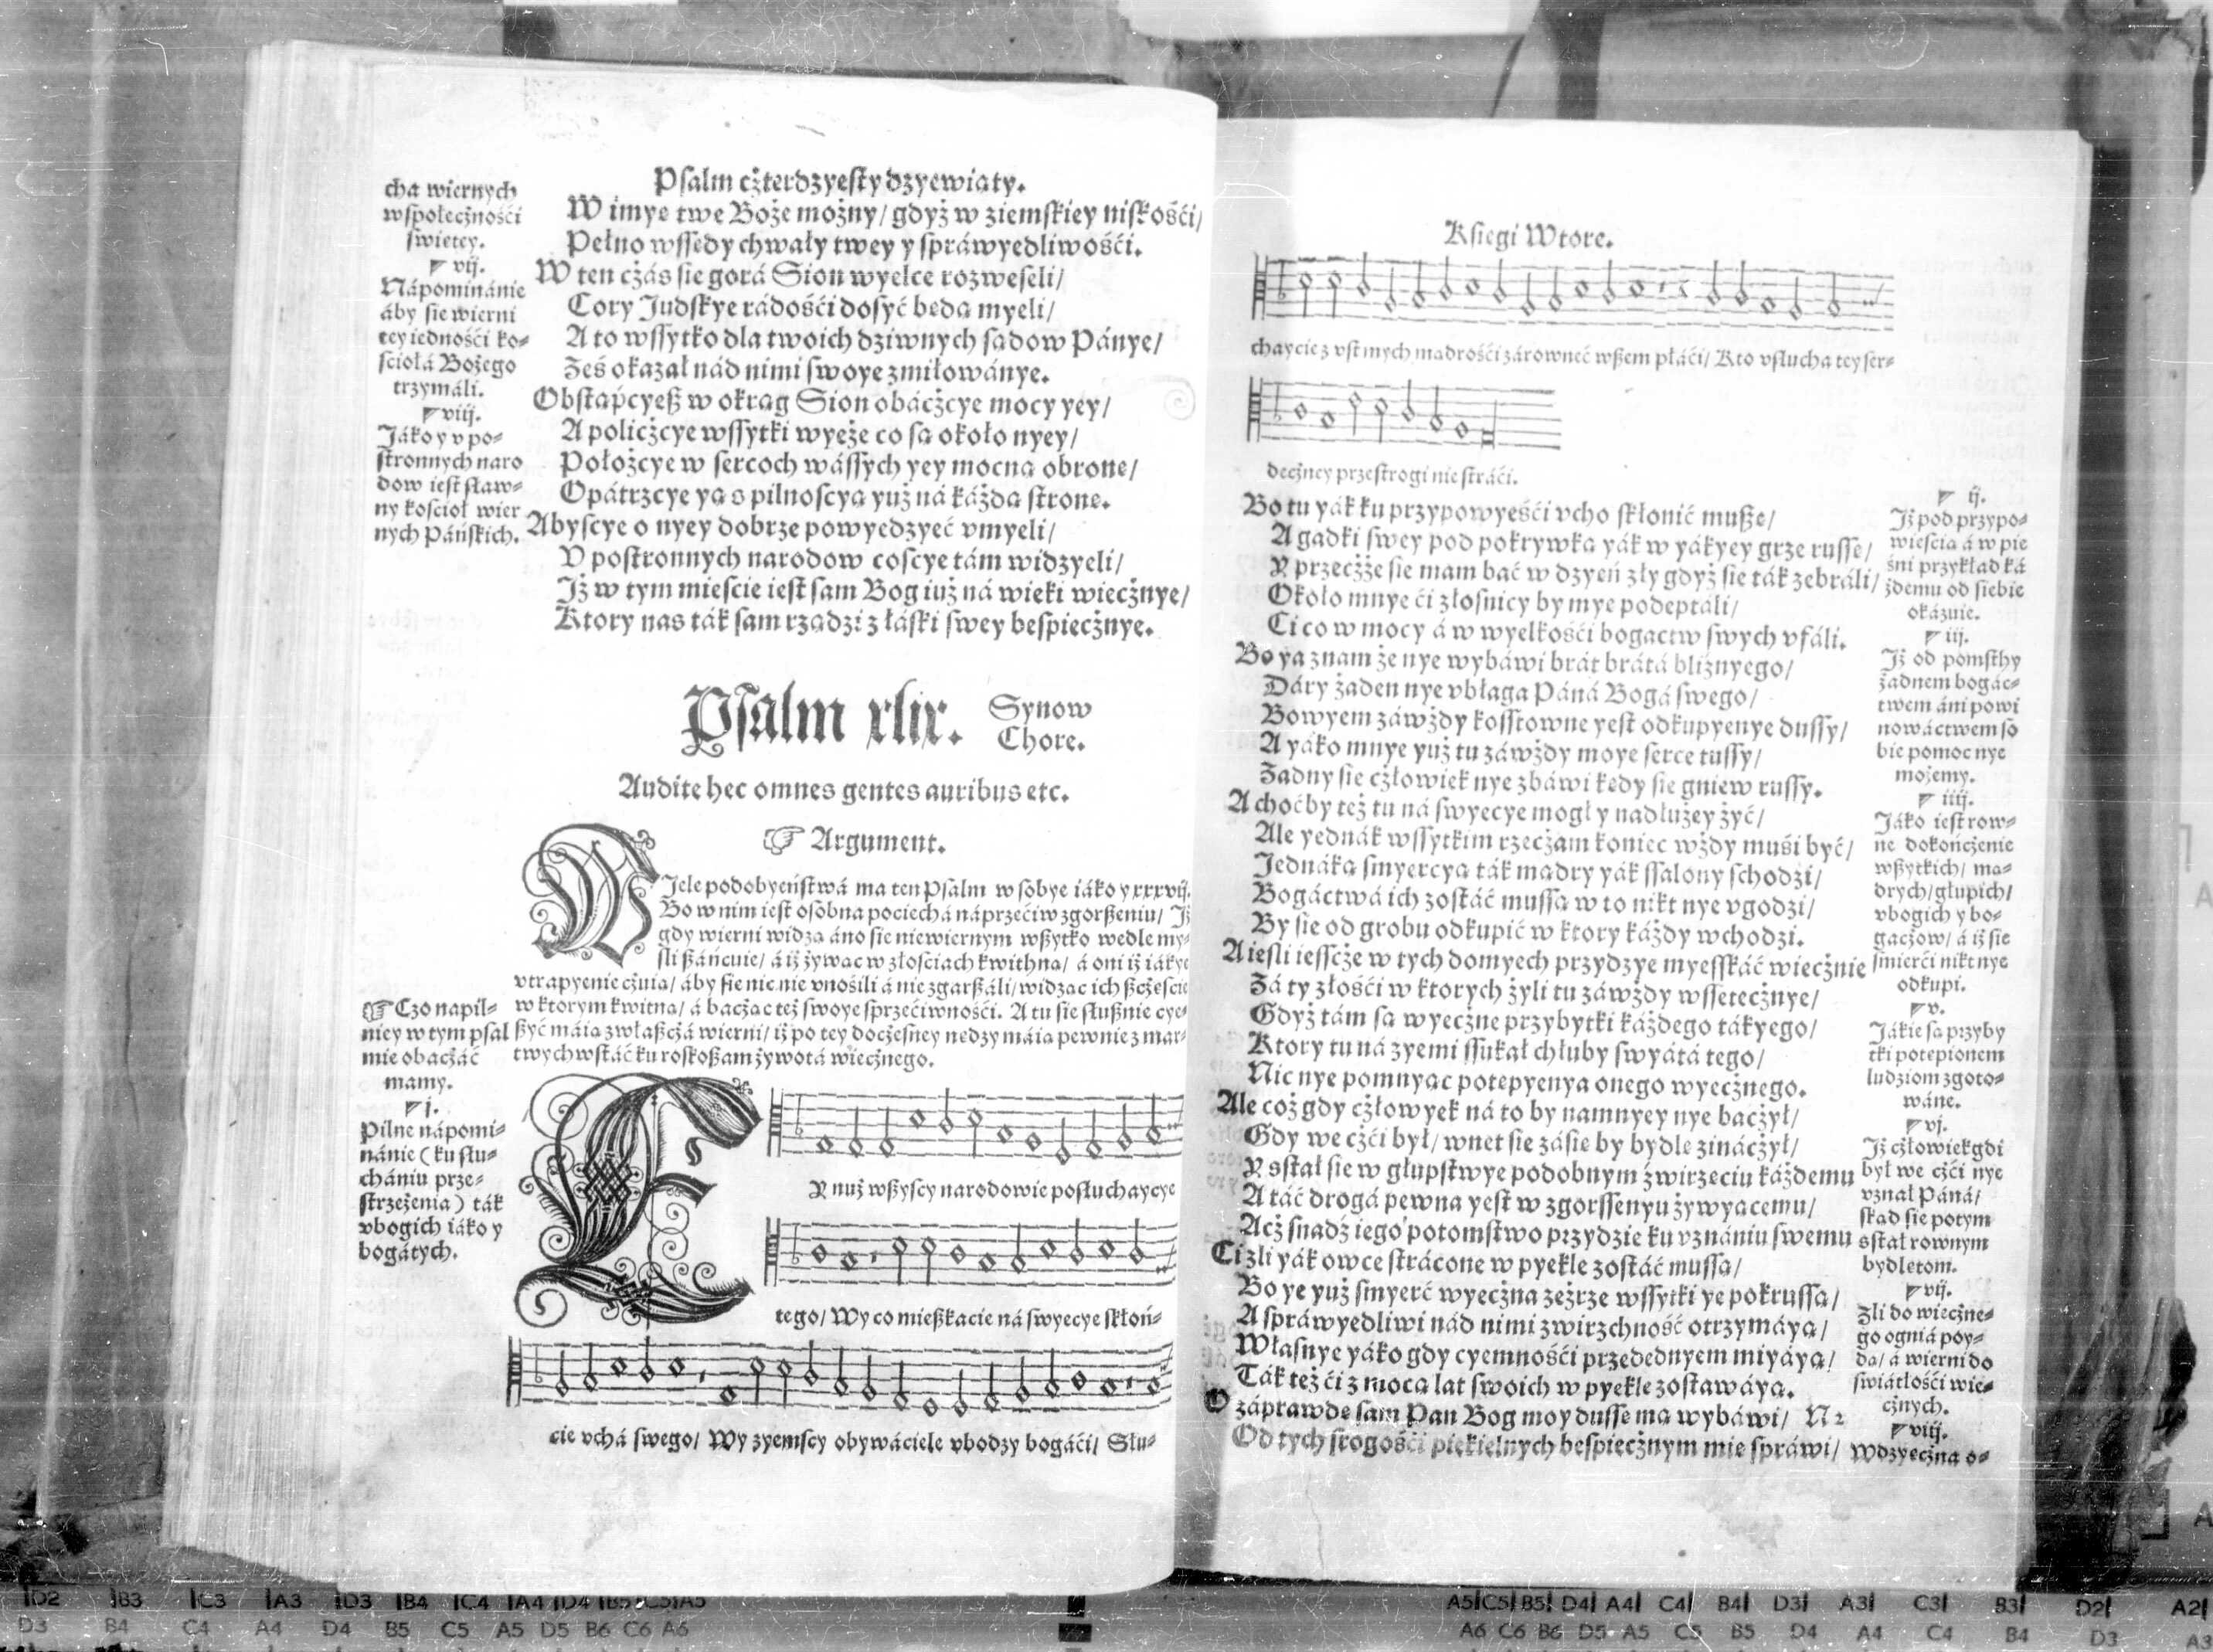 Psalm cżterdzyesty dzyewiąty.
cha wiernych
wspołecżnośći
świętey.
vij.
Nápominánie
áby sie wierni
tey iednośći ko⸗
ściołá Bożego
trzymáli.
viij.
Jáko y v po⸗
stronnych naro
dow iest sław⸗
ny kościoł wier
nych Páńskich.
W imye twe Boże możny/ gdyż w ziemskiey niskośći/
Pełno wssędy chwały twey y spráwyedliwośći.
W ten cżás sie gorá Sion wyelce rozweseli/
Cory Judskye rádośći dosyć będą myeli/
A to wssytko dla twoich dziwnych sądow Pánye/
Żeś okazał nád nimi swoye zmiłowánye.
Obstąpcyeß w okrąg Sion obácżcye mocy yey/
A policżcye wssytki wyeże co są około nyey/
Położcye w sercoch wássych yey mocną obronę/
Opátrzcye yą s pilnoscyą yuż ná káżdą stronę.
Abyscye o nyey dobrze powyedzyeć vmyeli/
V postronnych narodow coscye tám widzyeli/
Iż w tym mieście iest sam Bog iuż ná wieki wiecżnye/
Ktory nas ták sam rządzi z łáski swey bespiecżnye.
Psalm xlix.
Synow
Chore.
Audite hec omnes gentes auribus etc.
☞ Argument.
WJele podobyeństwá ma ten Psalm w sobye iáko y xxxvij.
Bo w nim iest osobna pociechá náprzećiw zgorßeniu/ Jż
gdy wierni widzą áno sie niewiernym wßytko wedle my⸗
śli ßáńcuie/ á iż żywąc w złościach kwithną/ á oni iż iákye
vtrapyenie cżuią/ áby sie nic nie vnośili á nie zgarßáli/ widząc ich ßcżęście
w ktorym kwitną/ á bacżąc też swoye sprzećiwnośći. A tu sie słußnie cye⸗
ßyć máią zwłaßcżá wierni/ iż po tey docżesney nędzy máią pewnie z mar⸗
twych wstáć ku roskoßam żywotá wiecżnego.
☞ Czo napil⸗
niey w tym psal
mie obacżáć
mamy.
j.
Pilne nápomi⸗
nánie (ku słu⸗
chániu prze⸗
strzeżenia) ták
vbogich iáko y
bogátych.
Y nuż wßyscy narodowie posłuchaycye
tego/ Wy co mießkacie ná swyecye skłoń⸗
cie vchá swego/ Wy zyemscy obywáciele vbodzy bogáći/ Słu⸗
Księgi Wtore.
chaycie z vst mych mądrośći zárowneć wßem płáći/ Kto vsłucha tey ser⸗
decżney przestrogi nie stráći.
Bo tu yák ku przypowyeśći vcho skłonić mußę/
A gadki swey pod pokrywką yák w yákyey grze russę/
Y przecżże sie mam bać w dzyeń zły gdyż sie ták zebráli/
Około mnye ći złośnicy by mye podeptáli/
Ci co w mocy á w wyelkośći bogactw swych vfáli.
Bo ya znam że nye wybáwi brát brátá bliżnyego/
Dáry żaden nye vbłaga Páná Bogá swego/
Bowyem záwżdy kosstowne yest odkupyenye dussy/
A yáko mnye yuż tu záwżdy moye serce tussy/
Żadny sie cżłowiek nye zbáwi kiedy sie gniew russy.
A choćby też tu ná swyecye mogł y nadłużey żyć/
Ale yednák wssytkim rzecżam koniec wżdy muśi być/
Jednáką smyercyą ták mądry yák ssalony schodzi/
Bogáctwá ich zostáć mussą w to nikt nye vgodzi/
By sie od grobu odkupić w ktory káżdy wchodzi.
A iesli iesscże w tych domyech przydzye myesskáć wiecżnie
Zá ty złośći w ktorych żyli tu záwżdy wssetecżnye/
Gdyż tám są wyecżne przybytki káżdego tákyego/
Ktory tu ná zyemi ssukał chłuby swyátá tego/
Nic nye pomnyąc potępyenya onego wyecżnego.
Ale coż gdy cżłowyek ná to by namnyey nye bacżył/
Gdy we cżći był/ wnet sie zásie by bydlę zinácżył/
Y sstał sie w głupstwye podobnym źwirzęciu káżdemu
A táć drogá pewna yest w zgorssenyu żywyącemu/
Acż snadź iego potomstwo przydzie ku vznániu swemu
Ci zli yák owce strácone w pyekle zostáć mussą/
Bo ye yuż smyerć wyecżna zeżrze wssytki ye pokrussą/
A spráwyedliwi nád nimi zwirzchność otrzymáyą/
Własnye yáko gdy cyemnośći przede dnyem miyáyą/
Ták też ći z mocą lat swoich w pyekle zostawáyą.
O záprawdę sam Pan Bog moy dussę mą wybáwi/ N 2
Od tych srogośći piekielnych bespiecżnym mie spráwi/
ij.
Jż pod przypo⸗
wieścią á w pie
śni przykład ká
żdemu od siebie
okázuie.
iij.
Jż od pomsthy
żadnem bogác⸗
twem áni powi
nowáctwem so
bie pomoc nye
możemy.
iiij.
Jáko iest row⸗
ne dokońcżenie
wßytkich/ mą⸗
drych/ głupich/
vbogich y bo⸗
gacżow/ á iż sie
śmierći nikt nye
odkupi.
v.
Jákie są przyby
tki potępionem
ludziom zgoto⸗
wáne.
vj.
Jż cżłowiek gdi
był we cżći nye
vznał Páná/
skąd sie potym
sstał rownym
bydlętom.
vij.
Zli do wiecżne⸗
go ogniá poy⸗
dą/ á wierni do
światłośći wie⸗
cżnych.
viij.
Wdzyecżna o⸗